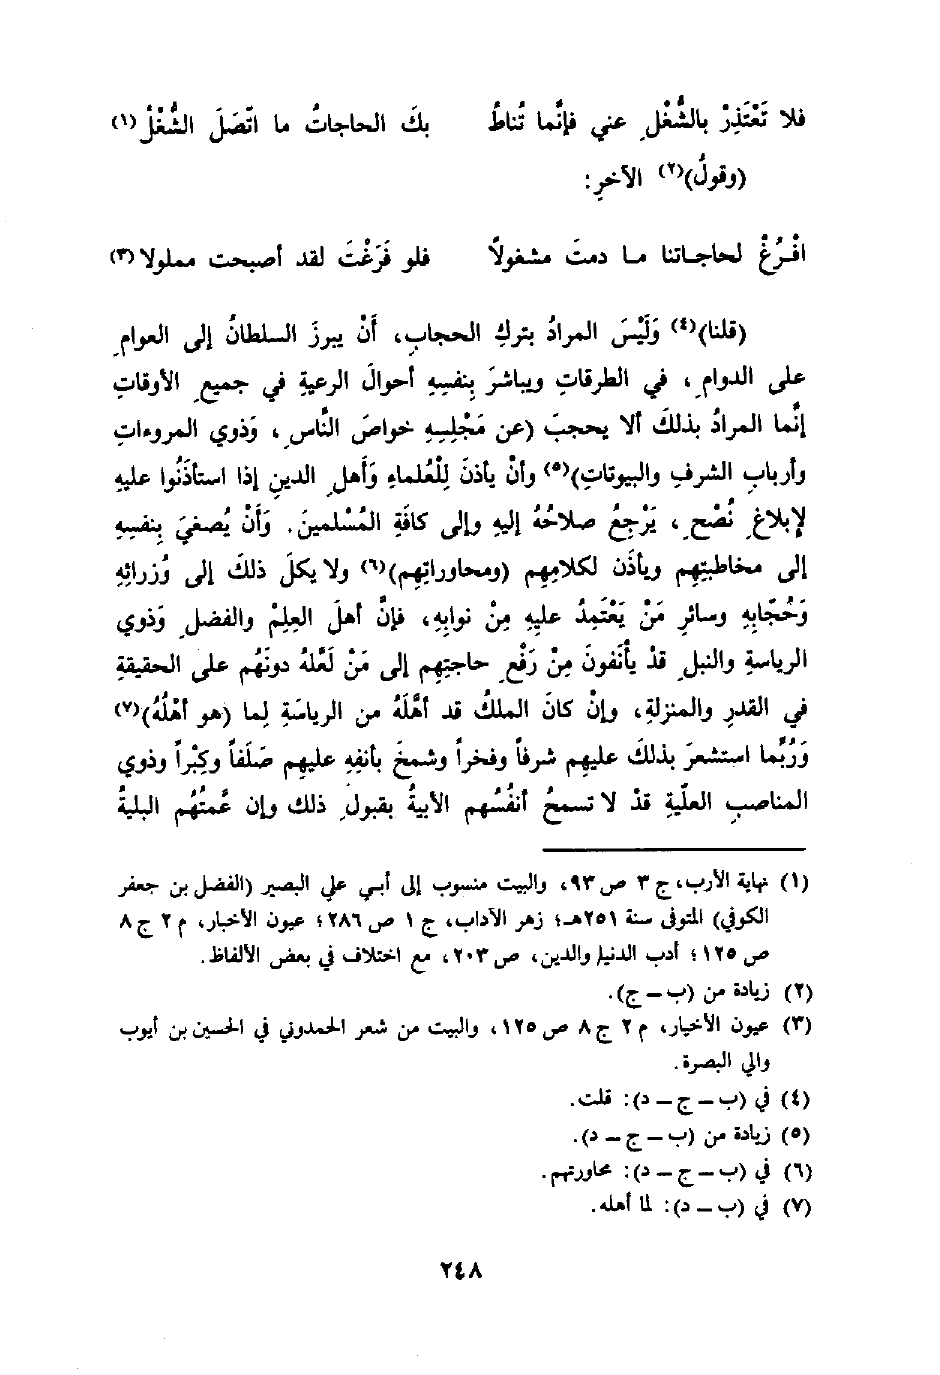 فلا تَعْتَذِرْ بالشُّغْلِ عني فإنَّما تُناطُ بكَ الحاجاتُ ما اتّصَلَ الشُّغْلُ (١)
(وقولُ)(٢) الآخرِ:
افْرُغْ لحاجاتنا ما دمتَ مشغولاً فلو فَرَغْتَ لقد أصبحت مملولا (٣)
(قلنا)(٤) وَلَيْسَ المرادُ بتركِ الحجابِ، أنْ يبرزَ السلطانُ إلى العوامِ
على الدوامِ، في الطرقاتِ ويباشرَ بِنفسِهِ أحوالَ الرعيةِ في جميعِ الأوقاتِ
إنَّما المرادُ بذلكَ ألا يحجبَ (عن مَجْلِسِهِ خواصَ النَّاسِ، وَذوي المروءاتِ
وأربابِ الشرفِ والبيوتاتِ)(٥) وأنْ يأذنَ لِلْعُلماءِ وَأهلِ الدينِ إذا استأذَنُوا عليهِ
لإبلاغِ نُصْحٍ، يَرْجِعُ صلاحُهُ إليهِ وإلى كافَةِ المُسْلمينَ. وَأنْ يُصغيَ بِنفسِهِ
إلى مخاطبتِهِم ويأذَن لكلامِهِم (ومحاوراتِهِم)(٦) ولا يكلَ ذلكَ إلى وُزرائِهِ
وَحُجّابِهِ وسائرِ مَنْ يَعْتَمِدُ عليهِ مِنْ نوابِهِ، فإنَّ أهلَ العِلِمْ والفضلِ وَذوي
الرياسةِ والنبلِ قدْ يأنَفونَ مِنْ رَفْعِ حاجتِهِم إلى مَنْ لَعْلهُ دونَهُم على الحقيقةِ
في القدرِ والمنزلةِ، وإنْ كانَ الملكُ قد أهَّلَهُ من الرياسَةِ لِما (هو أهْلُهُ)(٧)
وَرُبَّما استشعرَ بذلكَ عليهِم شرفاً وفخراً وشمخَ بأنفِهِ عليهِم صَلَفاً وكِبْراً وذوي
المناصبِ العلّيةِ قدْ لا تسمحُ أنفُسُهم الأبيةُ بقبولِ ذلك وإن عَمتُهُم البليةُ
(١) نهاية الأرب، ج ٣ ص ٩٣، والبيت منسوب إلى أبي علي البصير (الفضل بن جعفر
الكوفي) المتوفى سنة ٢٥١هـ؛ زهر الآداب، ج ١ ص ٢٨٦؛ عيون الأخبار، م ٢ ج ٨
ص ١٢٥؛ أدب الدنيا والدين، ص ٢٠٣، مع اختلاف في بعض الألفاظ.
(٢) زيادة من (ب – ج).
(٣) عيون الأخبار، م ٢ ج ٨ ص ١٢٥، والبيت من شعر الحمدوني في الحسين بن أيوب
والي البصرة.
(٤) في (ب – ج – د): قلت.
(٥) زيادة من (ب – ج – د).
(٦) في (ب – ج – د): محاورتهم.
(٧) في (ب – د): لما أهله.
٢٤٨